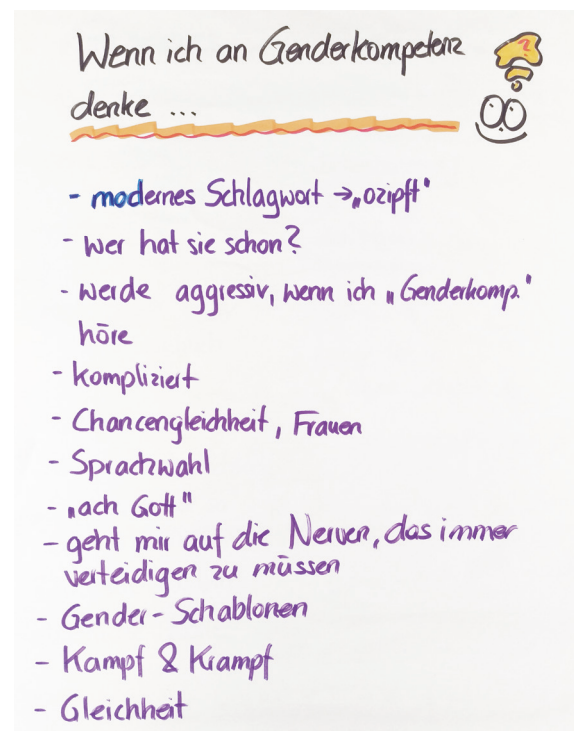 Wenn ich an Genderkompetenz
denke ...
?
- modernes Schlagwort → „ozipft"
- Wer hat sie schon?
- werde aggressiv, wenn ich „Genderkomp."
höre
- kompliziert
- Chancengleichheit, Frauen
- Sprachwahl
- „ach Gott"
- geht mir auf die Nerven, das immer
verteidigen zu müssen
- Gender-Schablonen
- Kampf & Krampf
- Gleichheit